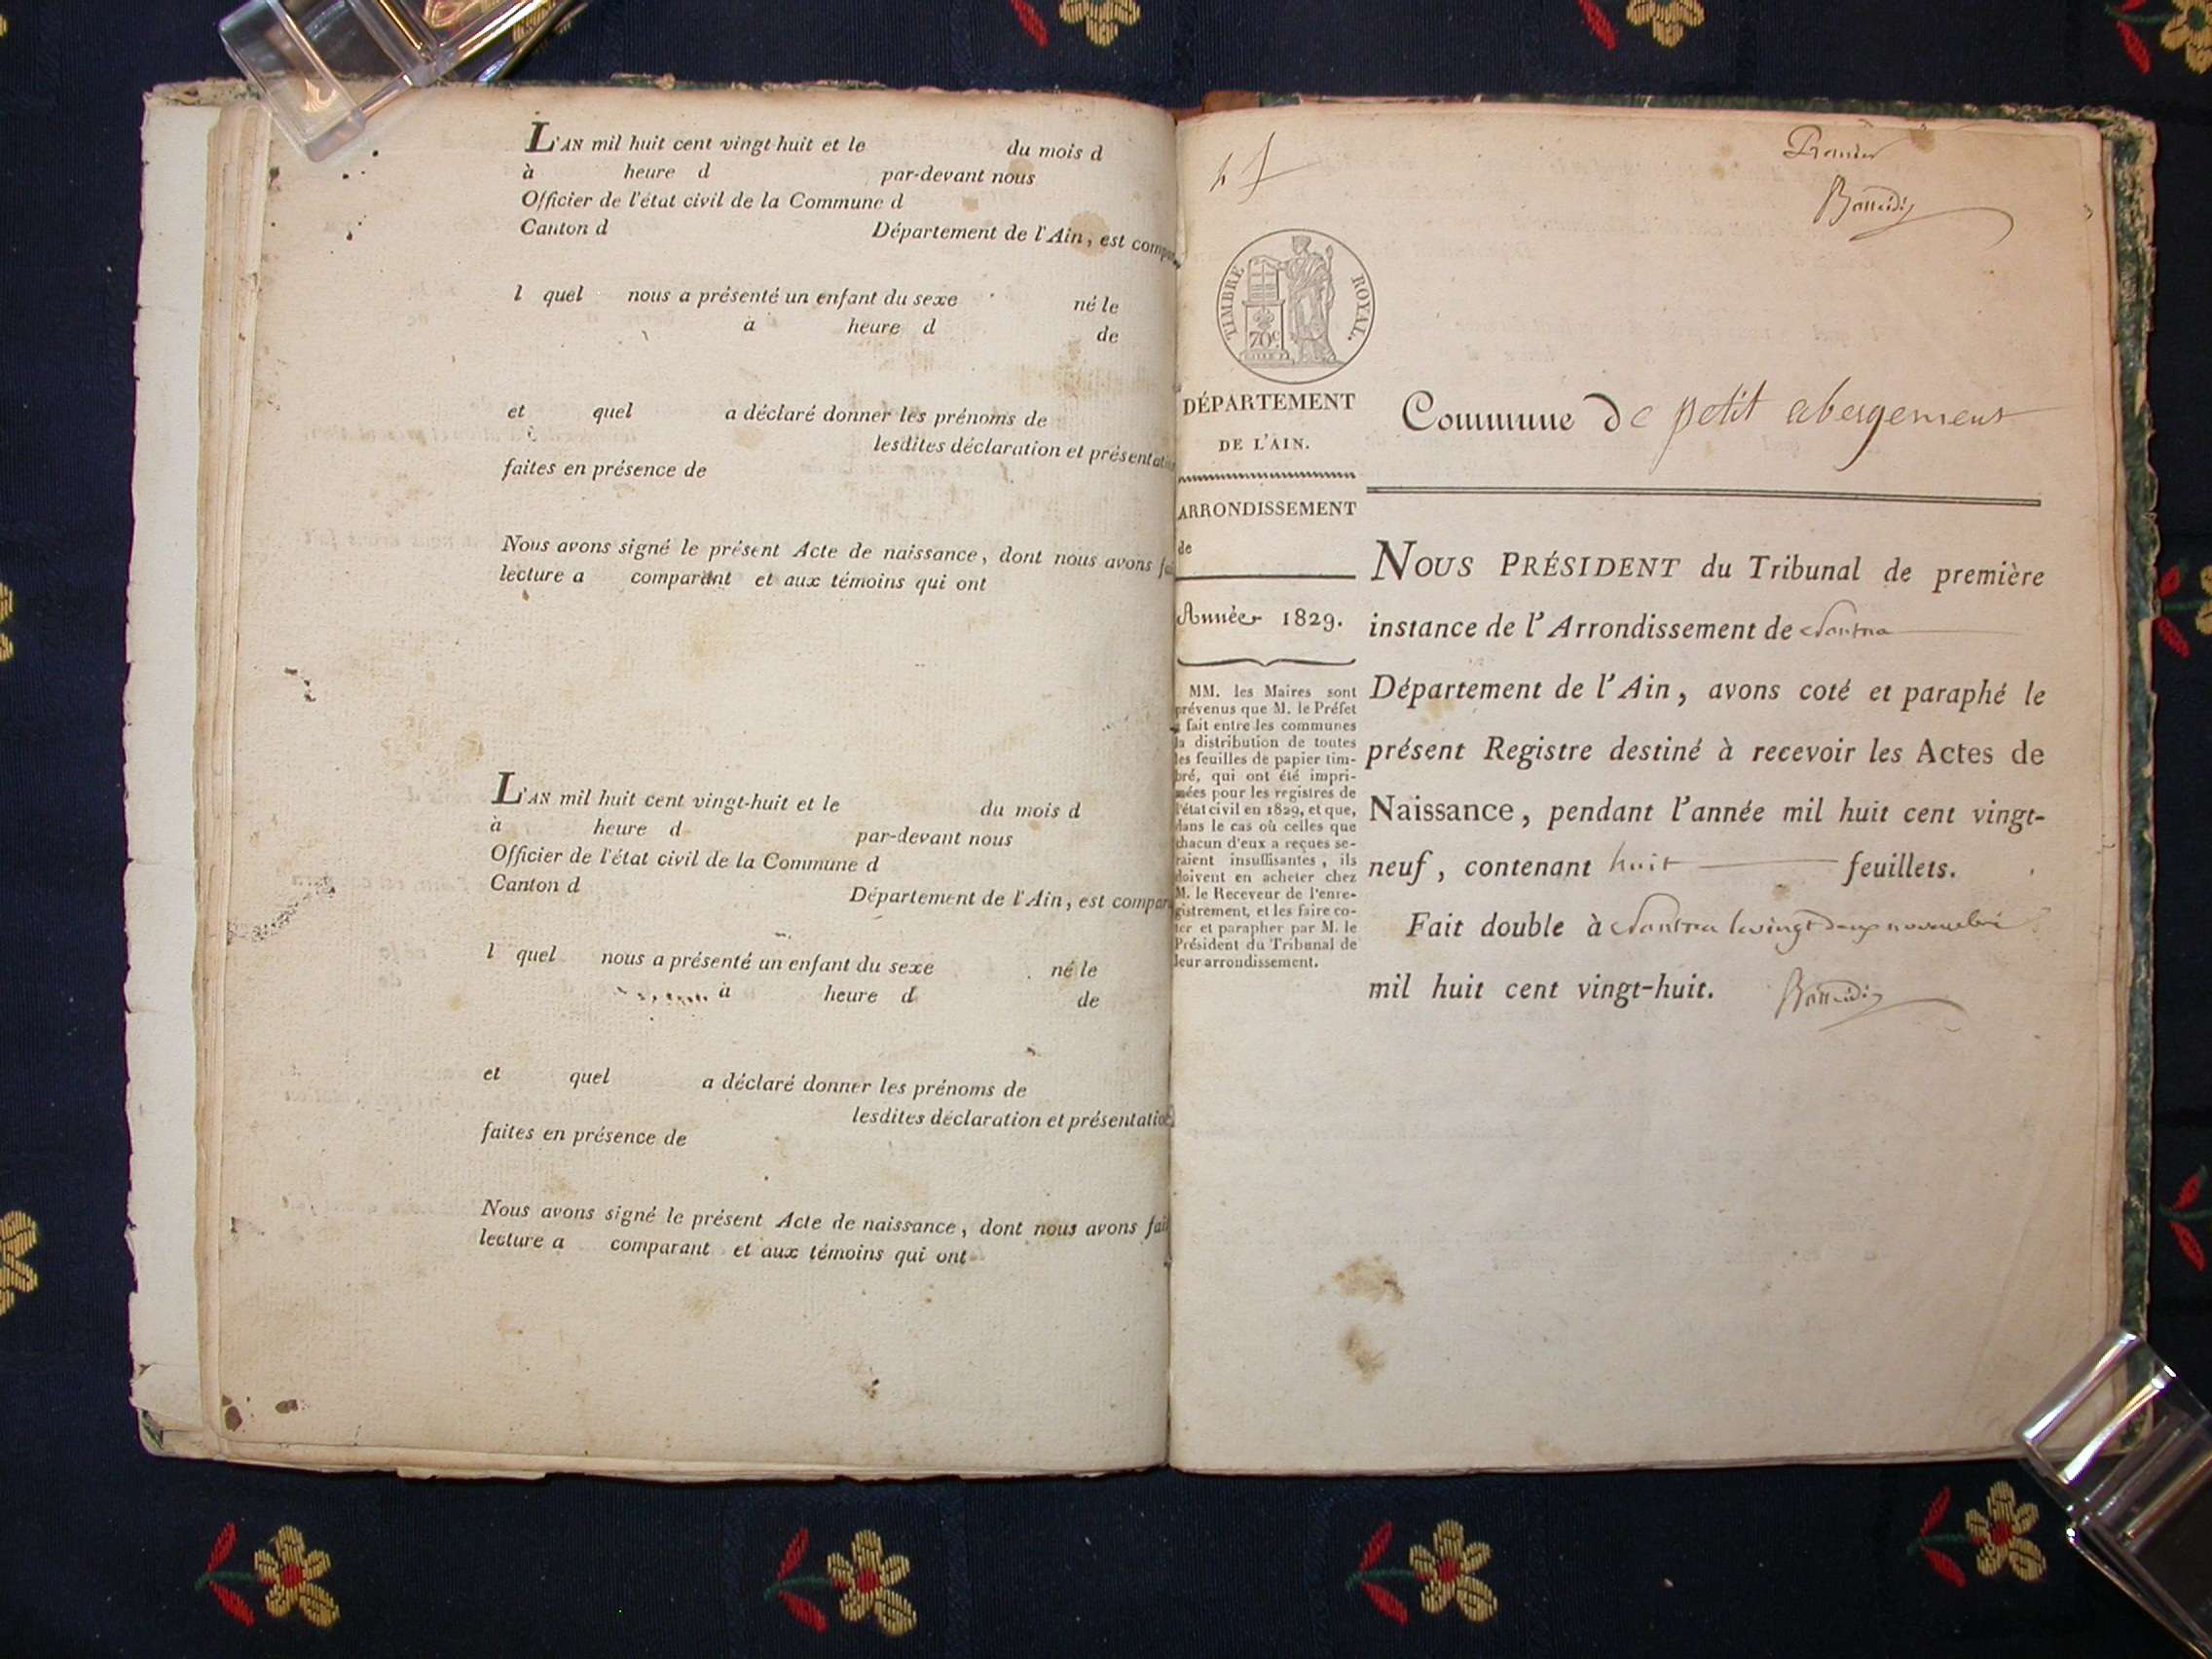 L'AN mil huit cent vingt-huit et le du mois d
à heure d par-devant nous
Officier de l'état civil de la Commune d
Canton d Département de l'Ain, est compar
l quel nous a présenté un enfant du sexe né le
à heure d de
et quel a déclaré donner les prénoms de
lesdites déclaration et présentation
faites en présence de
Nous avons signé le présent Acte de naissance, dont nous avons fai
lecture a comparant et aux témoins qui ont
L'AN mil huit cent vingt-huit et le du mois d
à heure d par-devant nous
Officier de l'état civil de la Commune d
Canton d Département de l'Ain, est compar
l quel nous a présenté un enfant du sexe né le
à heure d de
et quel a déclaré donner les prénoms de
lesdites déclaration et présentation
faites en présence de
Nous avons signé le présent Acte de naissance, dont nous avons fait
lecture a comparant et aux témoins qui ont
Premier
TIMBRE ROYAL.
70c
DÉPARTEMENT
DE L'AIN.
ARRONDISSEMENT
de
Année 1829.
MM. les Maires sont
prévenus que M. le Préfet
a fait entre les communes
la distribution de toutes
les feuilles de papier tim-
bré, qui ont été impri-
mées pour les registres de
l'état civil en 1829, et que,
dans le cas où celles que
chacun d'eux a reçues se-
raient insuffisantes, ils
doivent en acheter chez
M. le Receveur de l'enre-
gistrement, et les faire co-
ter et parapher par M. le
Président du Tribunal de
leur arrondissement.
Commune de petit abergement
NOUS PRÉSIDENT du Tribunal de première
instance de l'Arrondissement de Nantua
Département de l'Ain, avons coté et paraphé le
présent Registre destiné à recevoir les Actes de
Naissance, pendant l'année mil huit cent vingt-
neuf, contenant huit feuillets.
Fait double à Nantua le vingt deux novembre
mil huit cent vingt-huit.